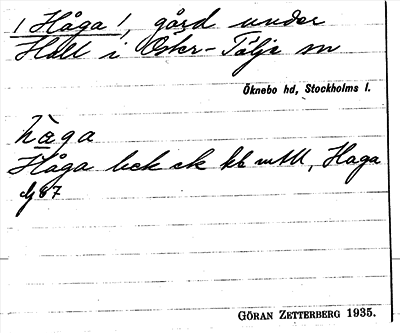 /Håga/, gård under
Hall i Öster-Tälje sn
Öknebo hd, Stockholms l.
hàga
Håga bck ek kb mtll, Haga
GÖRAN ZETTERBERG 1935.